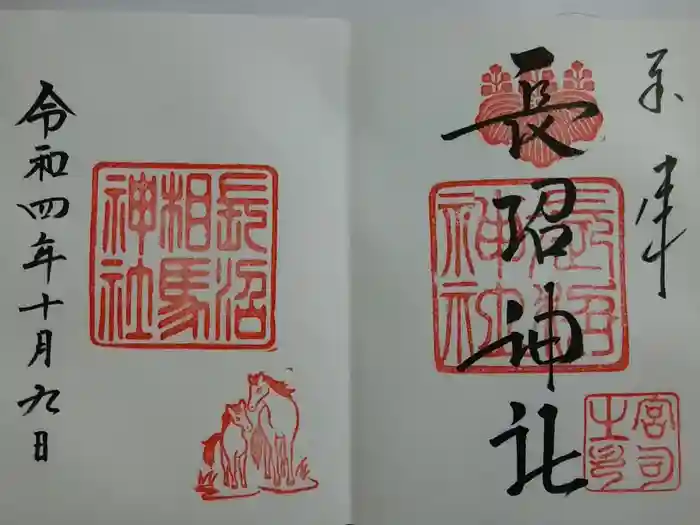 奉拝
長沼神社
長沼神社
宮司之印
長沼相馬神社
令和四年十月九日